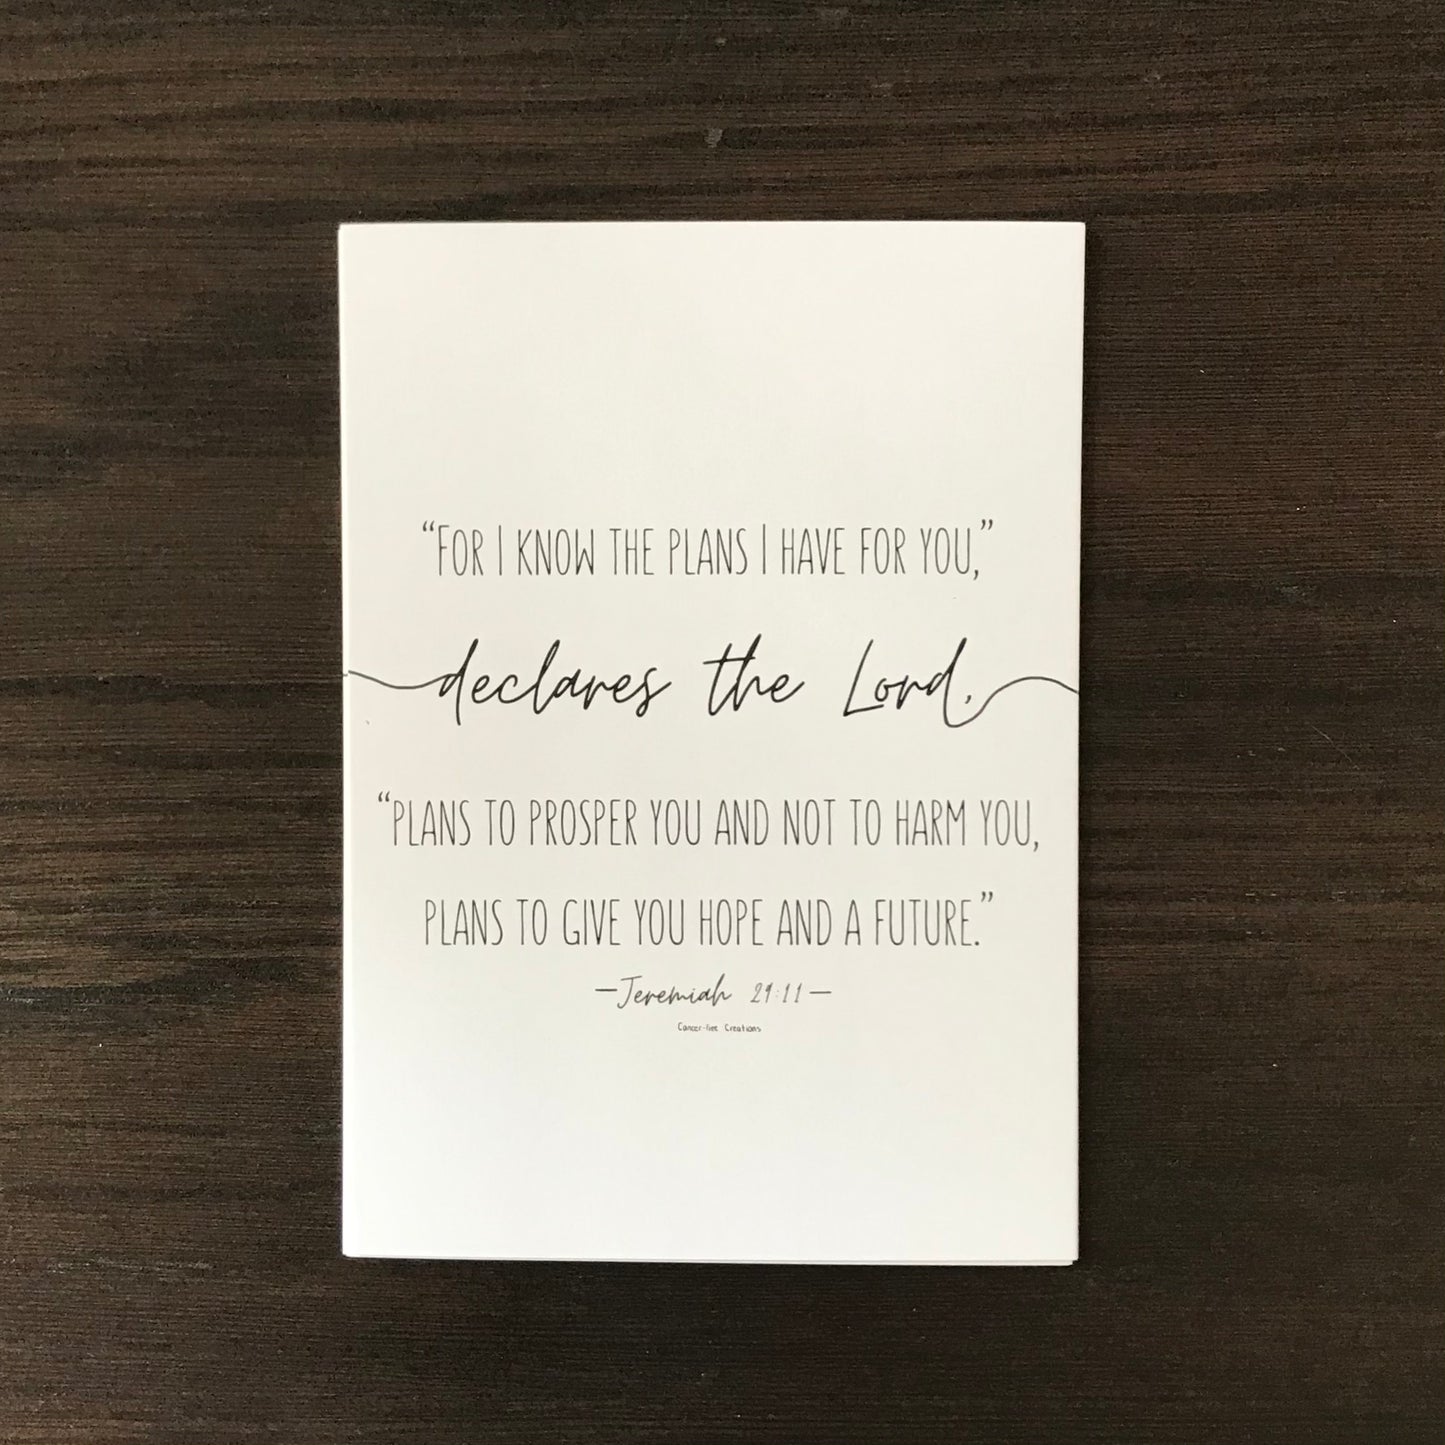 “FOR I KNOW THE PLANS I HAVE FOR YOU,”
declares the Lord,
“PLANS TO PROSPER YOU AND NOT TO HARM YOU,
PLANS TO GIVE YOU HOPE AND A FUTURE.”
—Jeremiah 29:11—
Cancer-free Creations